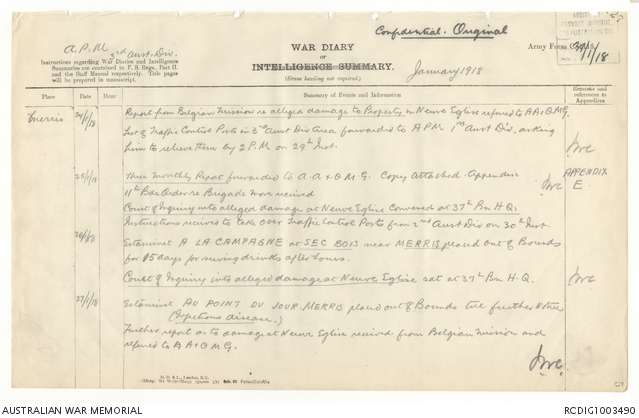 Confidential. Original
A.P.M. 3rd Aust. Div.
Instructions regarding War Diaries and Intelligence
Summaries are contained in F. S. Regs., Part II.
and the Staff Manual respectively. Title pages
will be prepared in manuscript.
WAR DIARY
OF
INTELLIGENCE SUMMARY.
(Erase heading not required.)
January 1918
Army Form
Place
Date
Hour
Summary of Events and Information
Remarks and
references to
Appendices
24/1/18
Report from Belgian Mission re alleged damage to Property in Neuve Eglise referred to AA&QMG.
List of Traffic Control Posts in 3rd Aust Div Area forwarded to APM 1st Aust Div. asking
him to relieve them by 2 P.M on 29th Inst.
25/1/18
Three monthly Report forwarded to A.A & Q M G. Copy Attached Appendix
APPENDIX
E
11th Bde Order re Brigade was received
Court of Inquiry into alleged damage at Neuve Eglise Convened at 37th Bn H.Q.
Instructions received to take over Traffic Control Posts from 2nd Aust Div on 30th Inst.
Estaminet A LA CAMPAGNE at SEC BOIS near MERRIS placed out of Bounds
for 15 days for serving drinks after hours.
Court of Inquiry into alleged damage at Neuve Eglise sat at 37th Bn H.Q.
27/1/18
Estaminet AU POINT DU JOUR MERRIS placed out of Bounds till further notice
disease.)
Further report as to damage at Neuve Eglise received from Belgian Mission and
referred to A A & Q M G.
AUSTRALIAN WAR MEMORIAL
RCDIG1003490